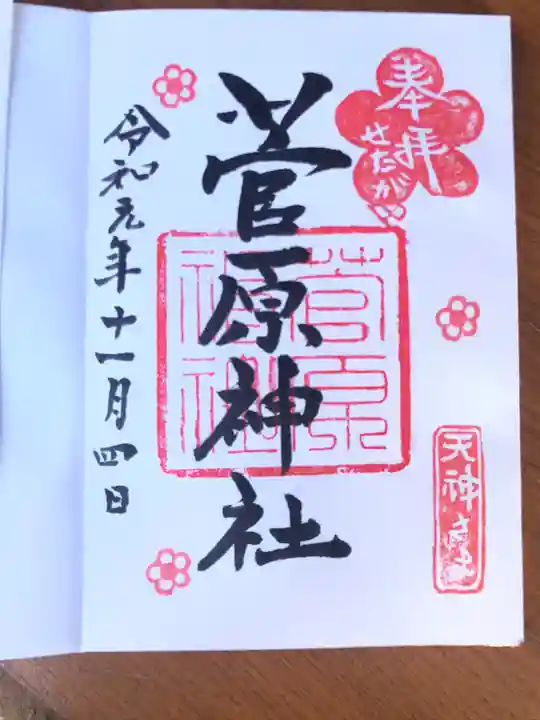 奉拝
せたがや
天神さま
菅原神社
菅原
神社
令和元年十一月四日